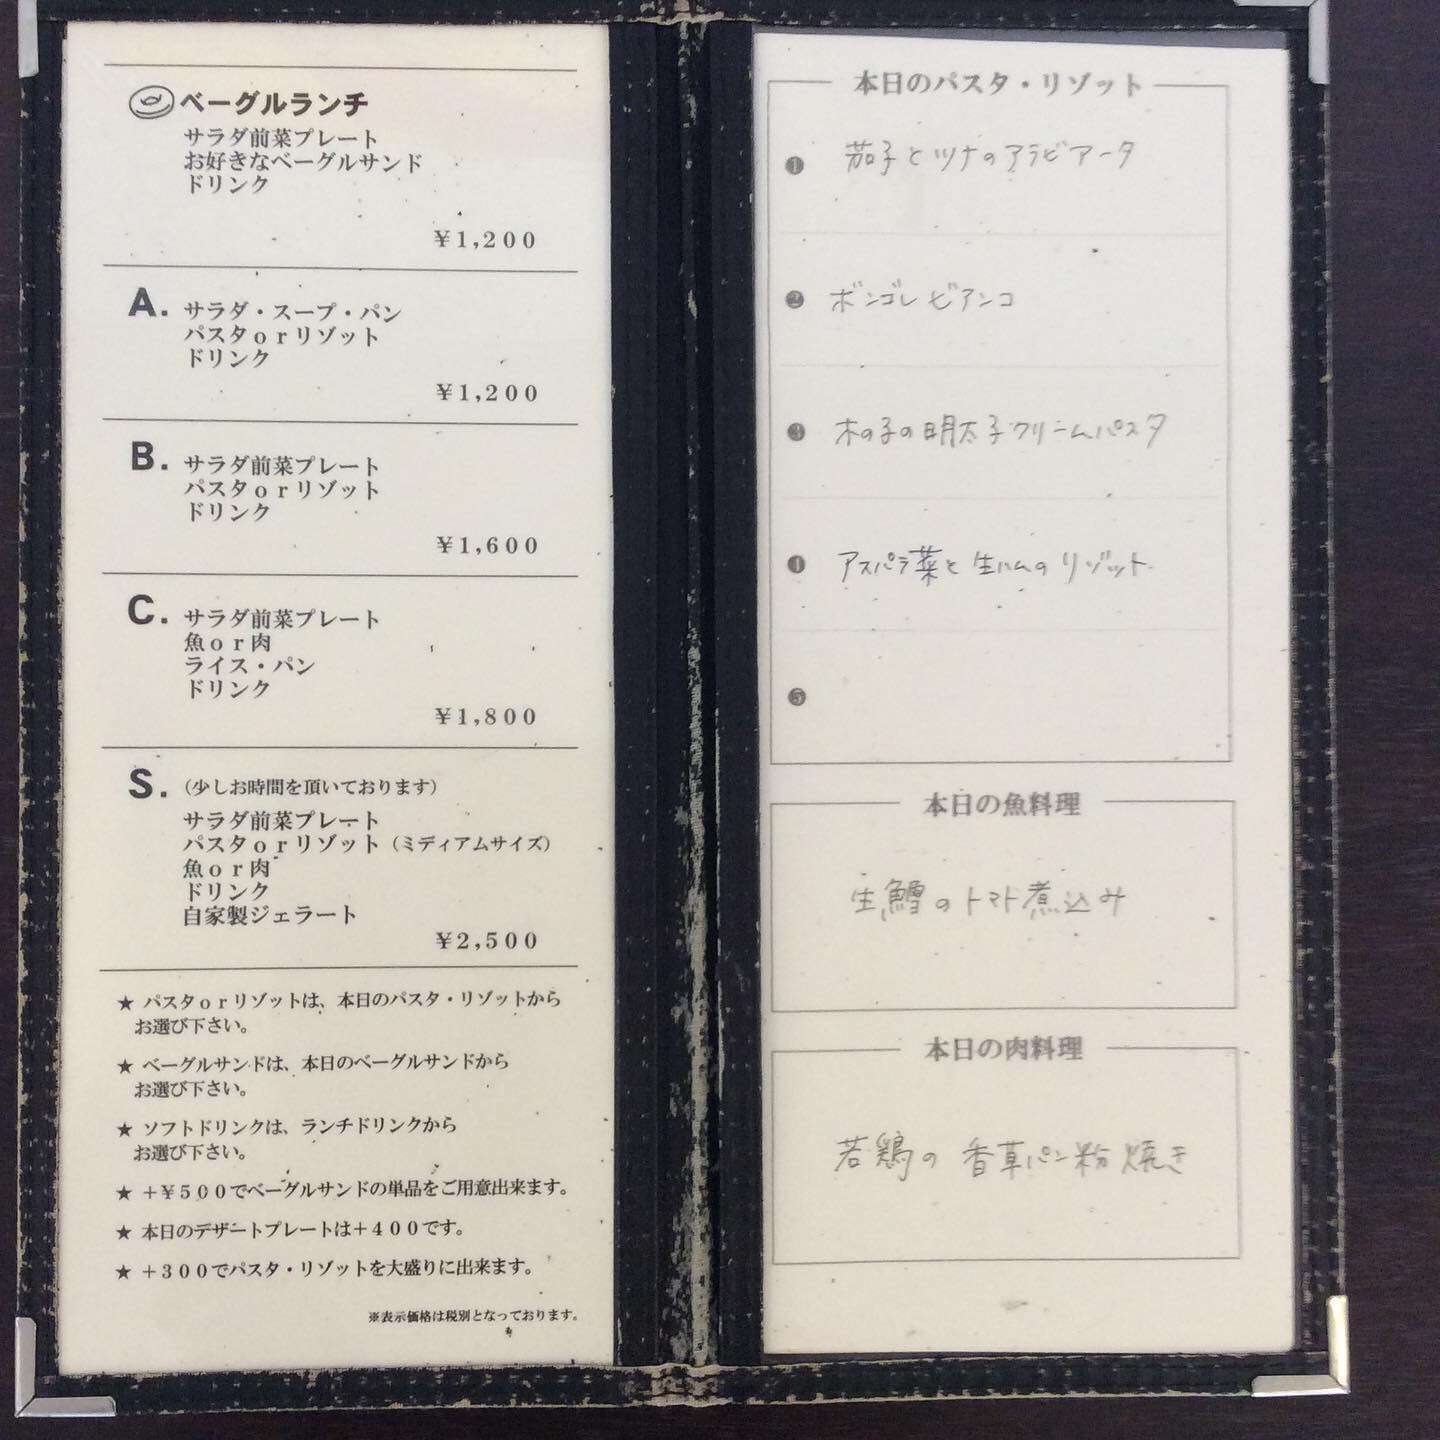 ベーグルランチ
サラダ前菜プレート
お好きなベーグルサンド
ドリンク
￥1,200
A. サラダ・スープ・パン
パスタorリゾット
ドリンク
￥1,200
B. サラダ前菜プレート
パスタorリゾット
ドリンク
￥1,600
C. サラダ前菜プレート
魚or肉
ライス・パン
ドリンク
￥1,800
S. (少しお時間を頂いております)
サラダ前菜プレート
パスタorリゾット(ミディアムサイズ)
魚or肉
ドリンク
自家製ジェラート
￥2,500
★ パスタorリゾットは、本日のパスタ・リゾットから
お選び下さい。
★ ベーグルサンドは、本日のベーグルサンドから
お選び下さい。
★ ソフトドリンクは、ランチドリンクから
お選び下さい。
★ +¥500でベーグルサンドの単品をご用意出来ます。
★ 本日のデザートプレートは+400です。
★ +300でパスタ・リゾットを大盛りに出来ます。
※表示価格は税別となっております。
本日のパスタ・リゾット
❶ 茄子とツナのアラビアータ
❷ ボンゴレビアンコ
❸ 木の子の明太子クリームパスタ
❹ アスパラ菜と生ハムのリゾット
❺
本日の魚料理
生鱈のトマト煮込み
本日の肉料理
若鶏の香草パン粉焼き